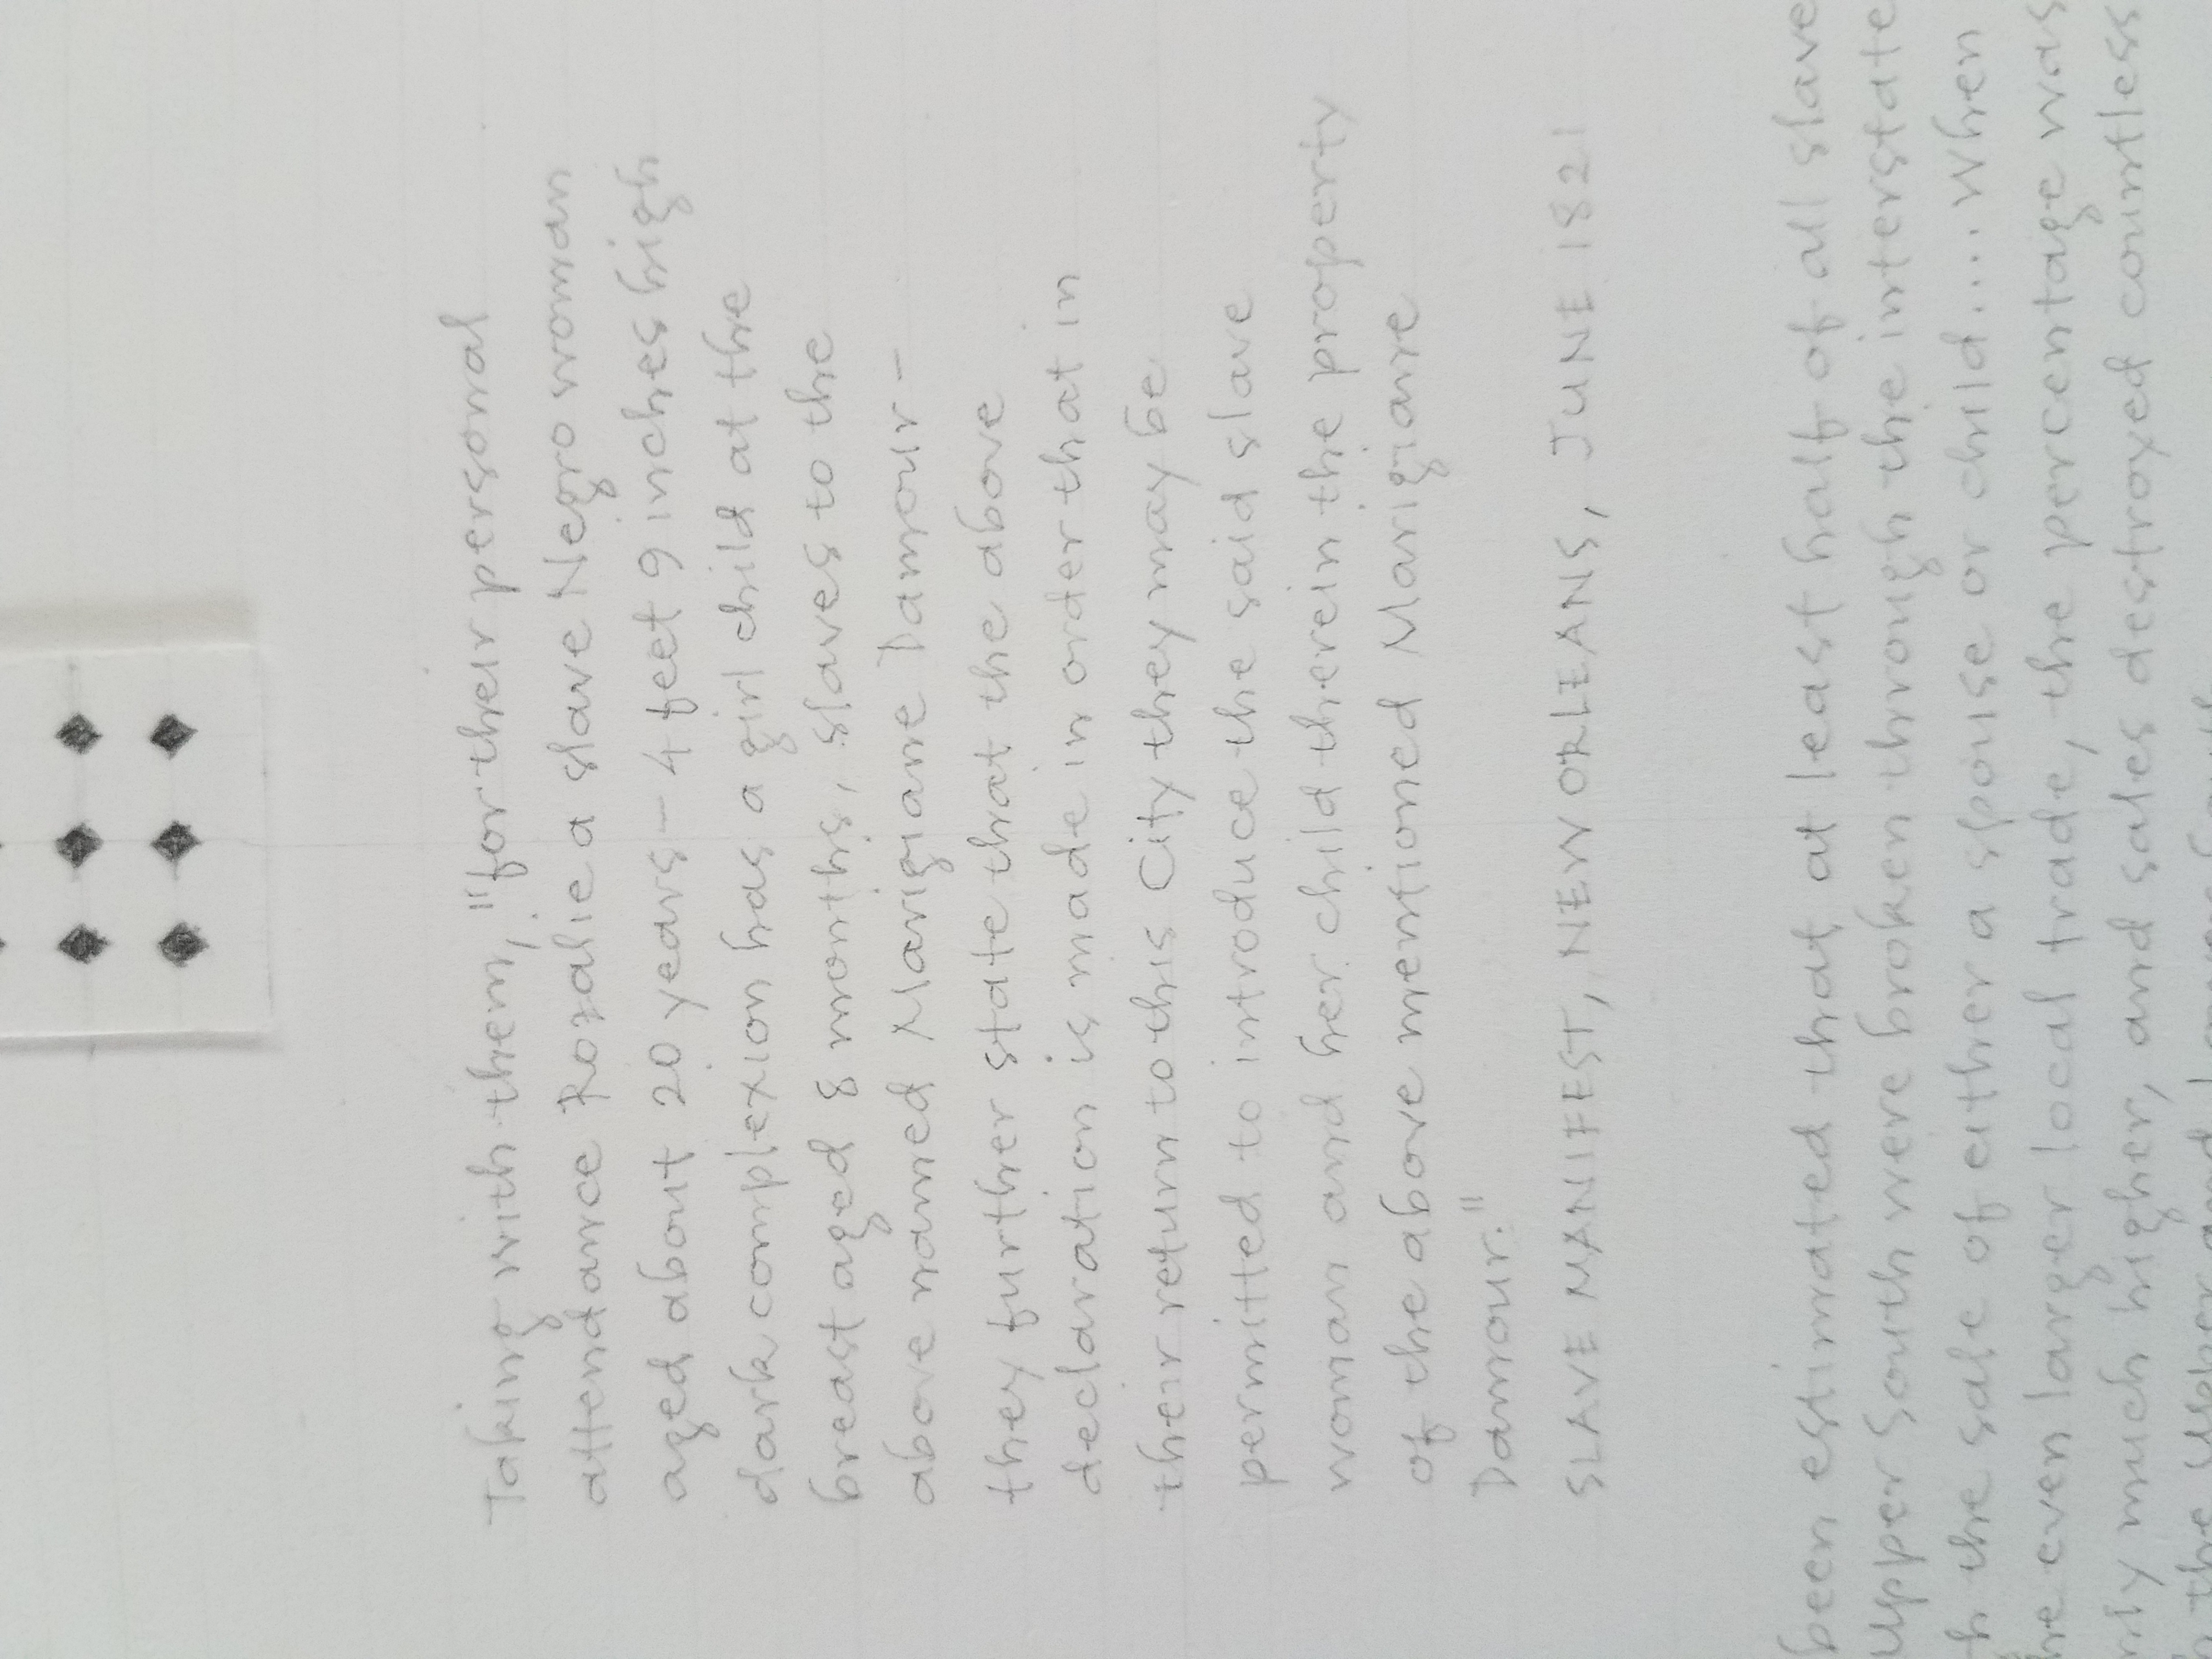 Taking with them, "for their personal
attendance Rozalie a slave Negro woman
aged about 20 years - 4 feet 9 inches high
dark complexion has a girl child at the
breast aged 8 months, slaves to the
above named Marigiane Damour -
they further state that the above
declaration is made in order that in
their return to this City they may be
permitted to introduce the said slave
woman and her child therein the property
of the above mentioned Marigiane
Damour."
SLAVE MANIFEST, NEW ORLEANS, JUNE 1821
been estimated that at least half of all slave
Upper South were broken through the interstate
the sale of either a spouse or child.... When
even larger local trade, the percentage was
much higher, and sales destroyed countless
the Upper and Lower South